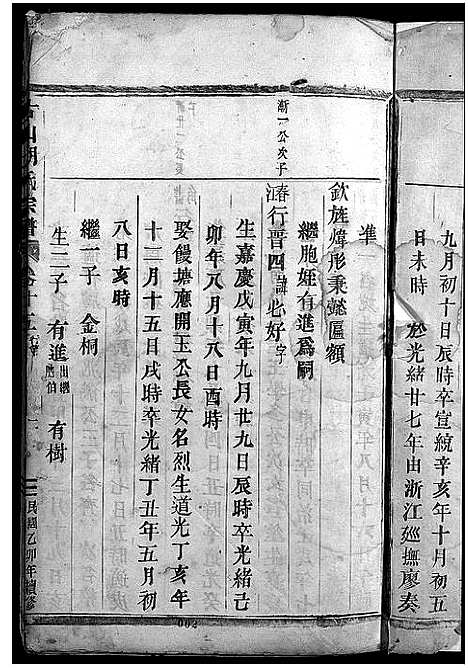 九月初十日辰時卒宣統辛亥年十月初五
日未時 於光緒廿七年由浙江廵撫廖奏
準
欽旌煒彤秉懿匾額
繼胞姪有進爲嗣
漸一公次子
濤行晋四諱必好字
生嘉慶戊寅年九月廿九日辰時卒光緒己
卯年八月十八日酉時
娶饅塘廳開玉公長女名烈生道光丁亥年
十二月十五日戌時卒光緒丁丑年五月初
八日亥時
繼一子 金桐
生二子 有進出繼胞伯 有樹
宗譜 卷十五 一 民國乙卯年續修
002